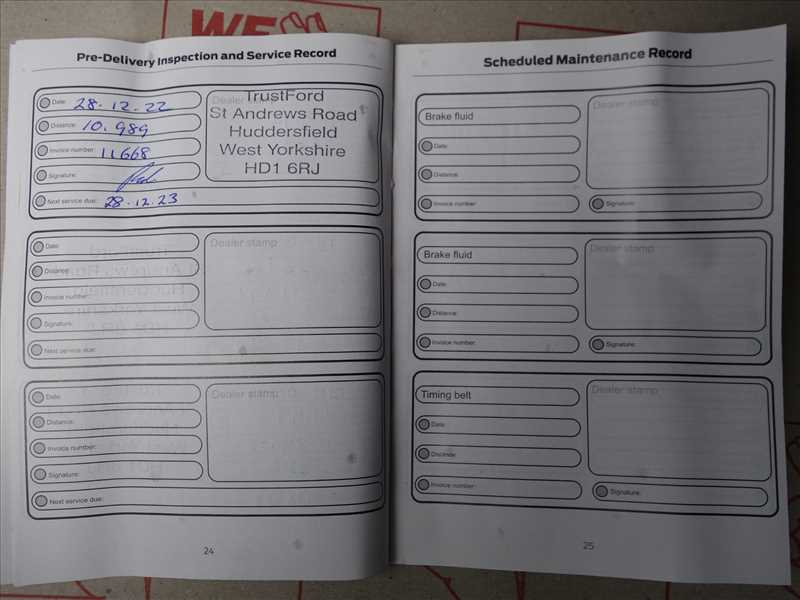 WE
Pre-Delivery Inspection and Service Record
Date: 28.12.22
Distance: 10.989
Invoice number: 11668
Signature:
Next service due: 28.12.23
Dealer stamp
TrustFord
St Andrews Road
Huddersfield
West Yorkshire
HD1 6RJ
Date:
Distance:
Invoice number:
Signature:
Next service due:
Dealer stamp
Date:
Distance:
Invoice number:
Signature:
Next service due:
Dealer stamp
24
Scheduled Maintenance Record
Brake fluid
Date:
Distance:
Invoice number:
Dealer stamp
Signature:
Brake fluid
Date:
Distance:
Invoice number:
Dealer stamp
Signature:
Timing belt
Date:
Distance:
Invoice number:
Dealer stamp
Signature:
25